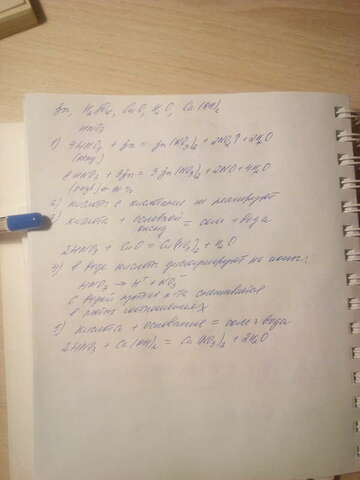 Zn, H2SO4, CuO, H2O, Ca(OH)2
HNO3
1) 4HNO3 + Zn = Zn(NO3)2 + 2NO2↑ + 2H2O
(конц)
8HNO3 + 3Zn = 3Zn(NO3)2 + 2NO + 4H2O
2) кислота с кислотами не реагируют
3) кислота + основной оксид = соль + вода
2HNO3 + CuO = Cu(NO3)2 + H2O
4) в воде кислоты диссоциируют на ионы:
HNO3 → H+ + NO3-
с водой азотная к-та смешивается
в любых соотношениях
5) кислота + основание = соль + вода
2HNO3 + Ca(OH)2 = Ca(NO3)2 + 2H2O